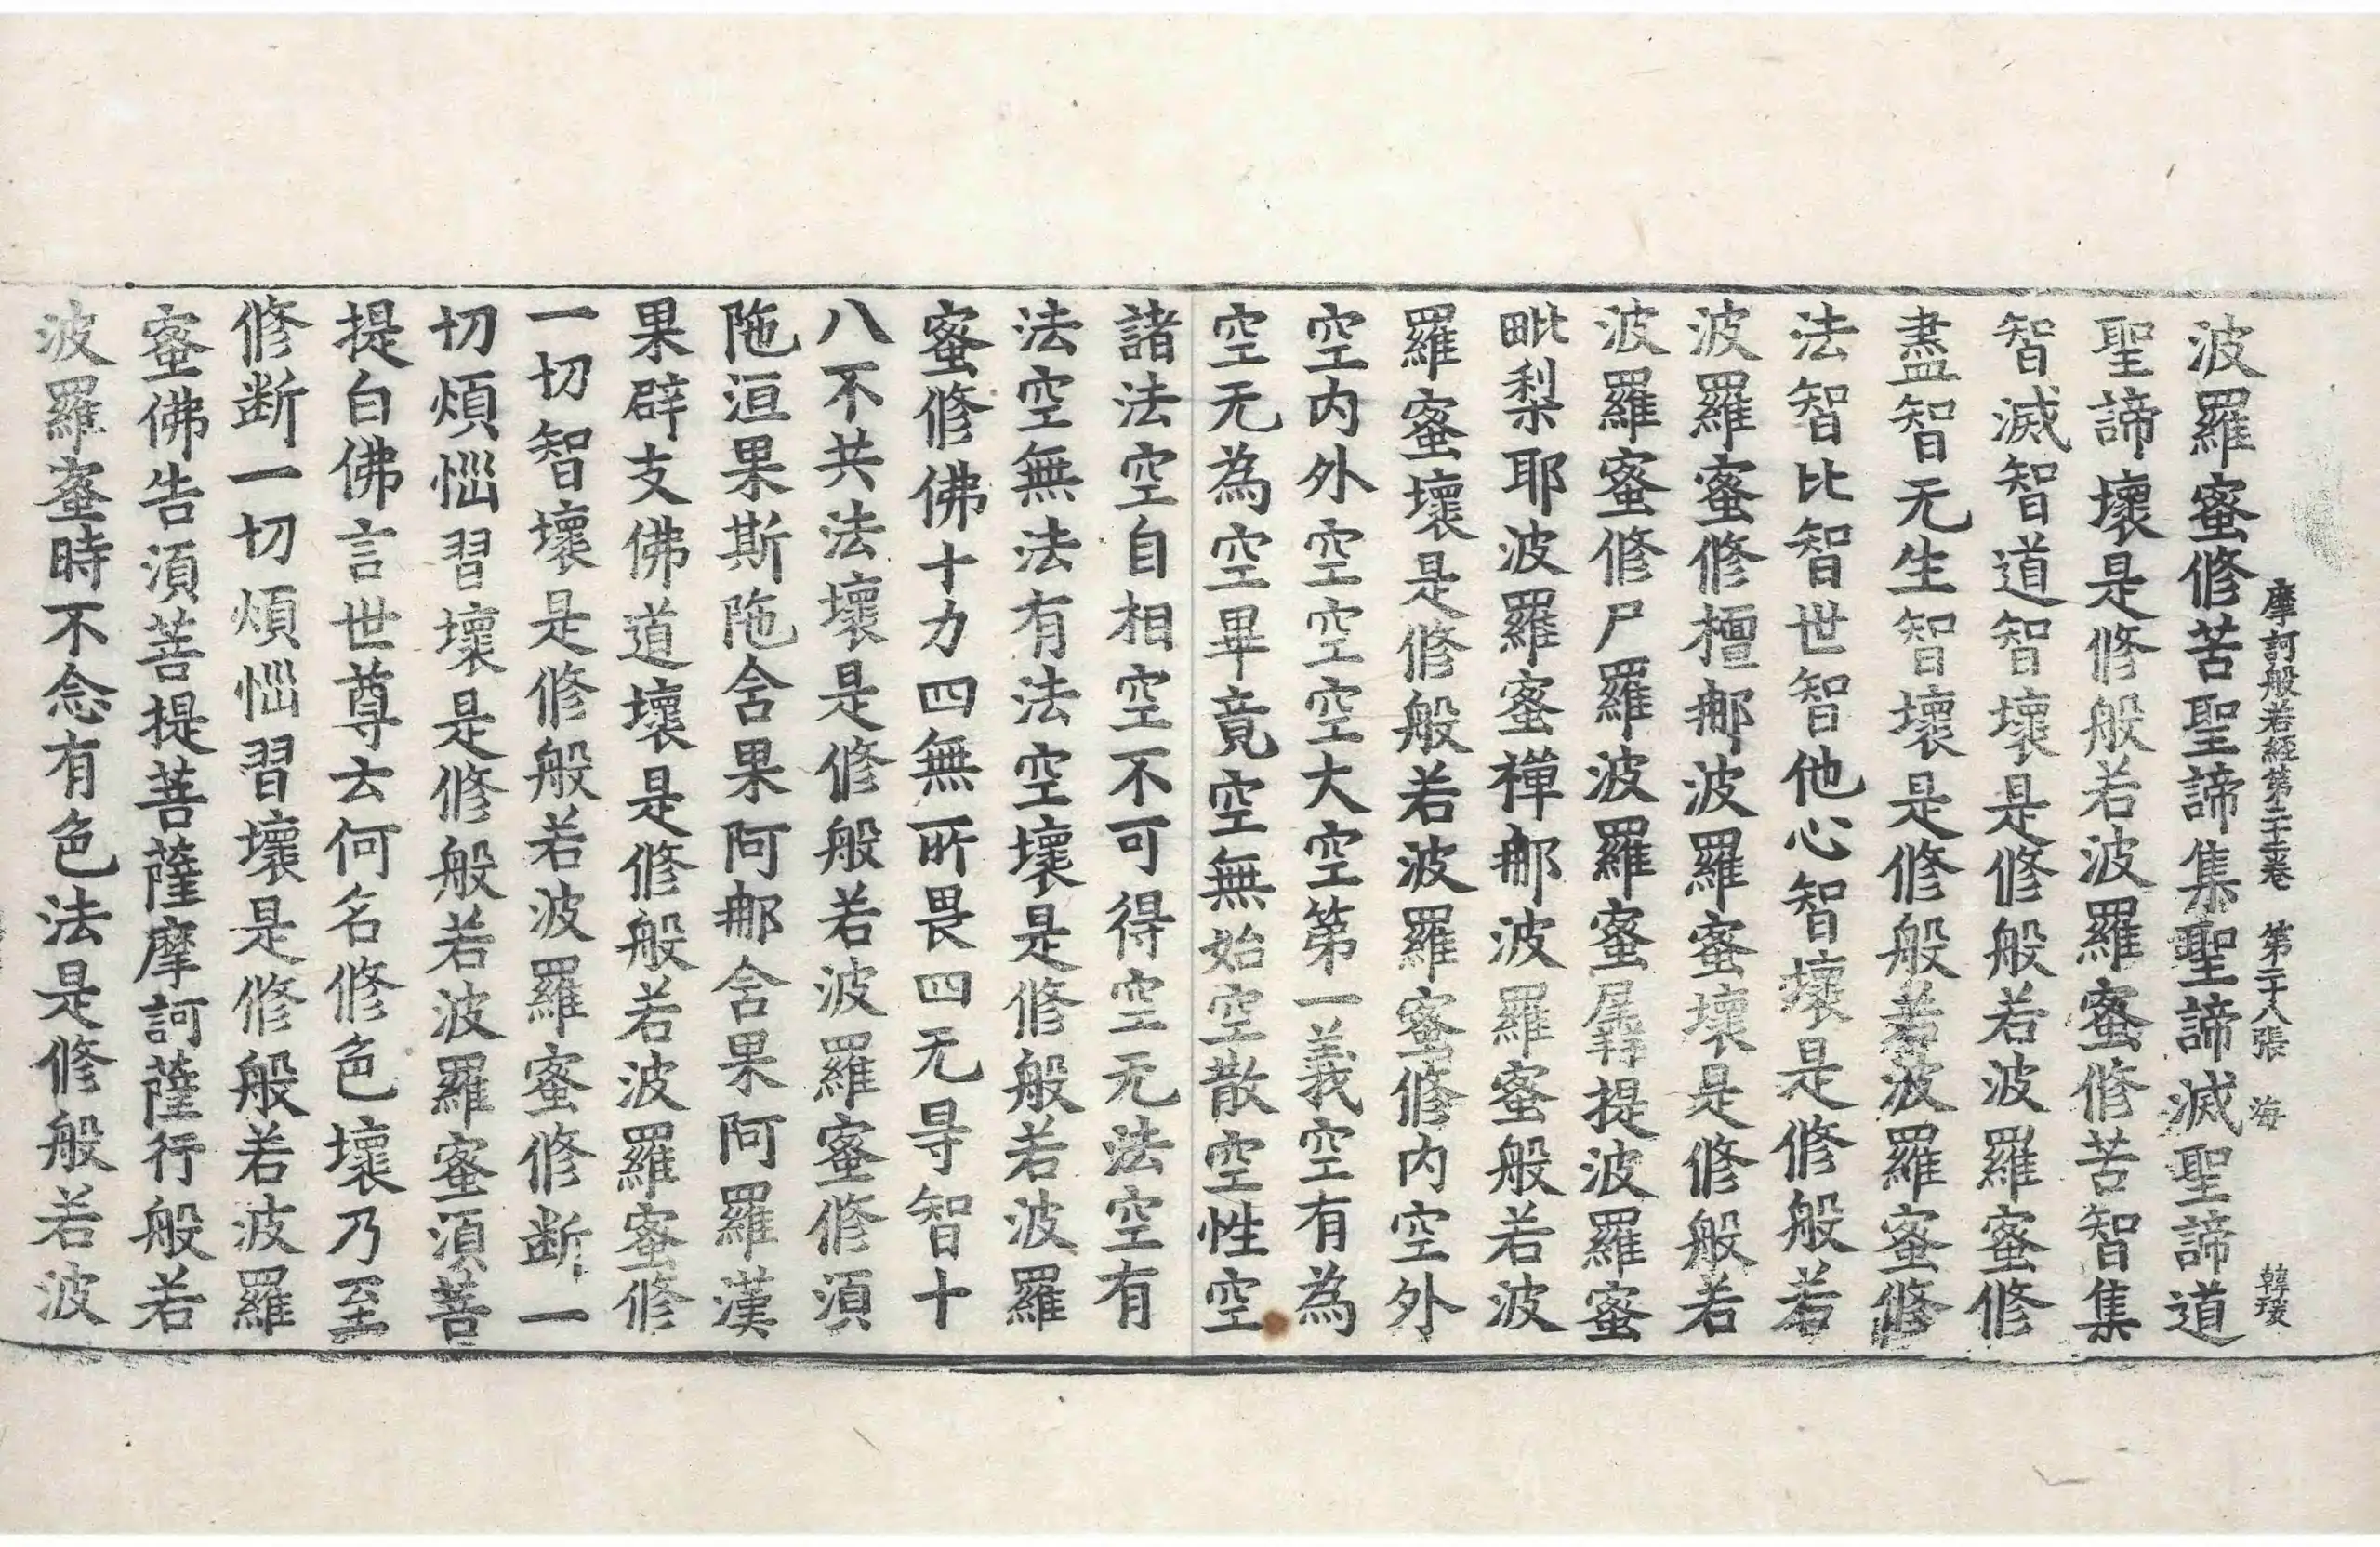 摩訶般若經第二十二卷 第二十八張 海 韓瑗
波羅蜜修苦聖諦集聖諦滅聖諦道
聖諦壞是修般若波羅蜜修苦智集
智滅智道智壞是修般若波羅蜜修
盡智无生智壞是修般若波羅蜜修
法智比智世智他心智壞是修般若
波羅蜜修檀那波羅蜜壞是修般若
波羅蜜修尸羅波羅蜜羼提波羅蜜
毗梨耶波羅蜜禪那波羅蜜般若波
羅蜜壞是修般若波羅蜜修内空外
空内外空空空大空第一義空有為
空无為空畢竟空無始空散空性空
諸法空自相空不可得空无法空有
法空無法有法空壞是修般若波羅
蜜修佛十力四無所畏四无㝵智十
八不共法壞是修般若波羅蜜修湏
陁洹果斯陁含果阿那含果阿羅漢
果辟支佛道壞是修般若波羅蜜修
一切智壞是修般若波羅蜜修断一
切煩惱習壞是修般若波羅蜜湏菩
提白佛言世尊云何名修色壞乃至
修断一切煩惱習壞是修般若波羅
蜜佛告湏菩提菩薩摩訶薩行般若
波羅蜜時不念有色法是修般若波